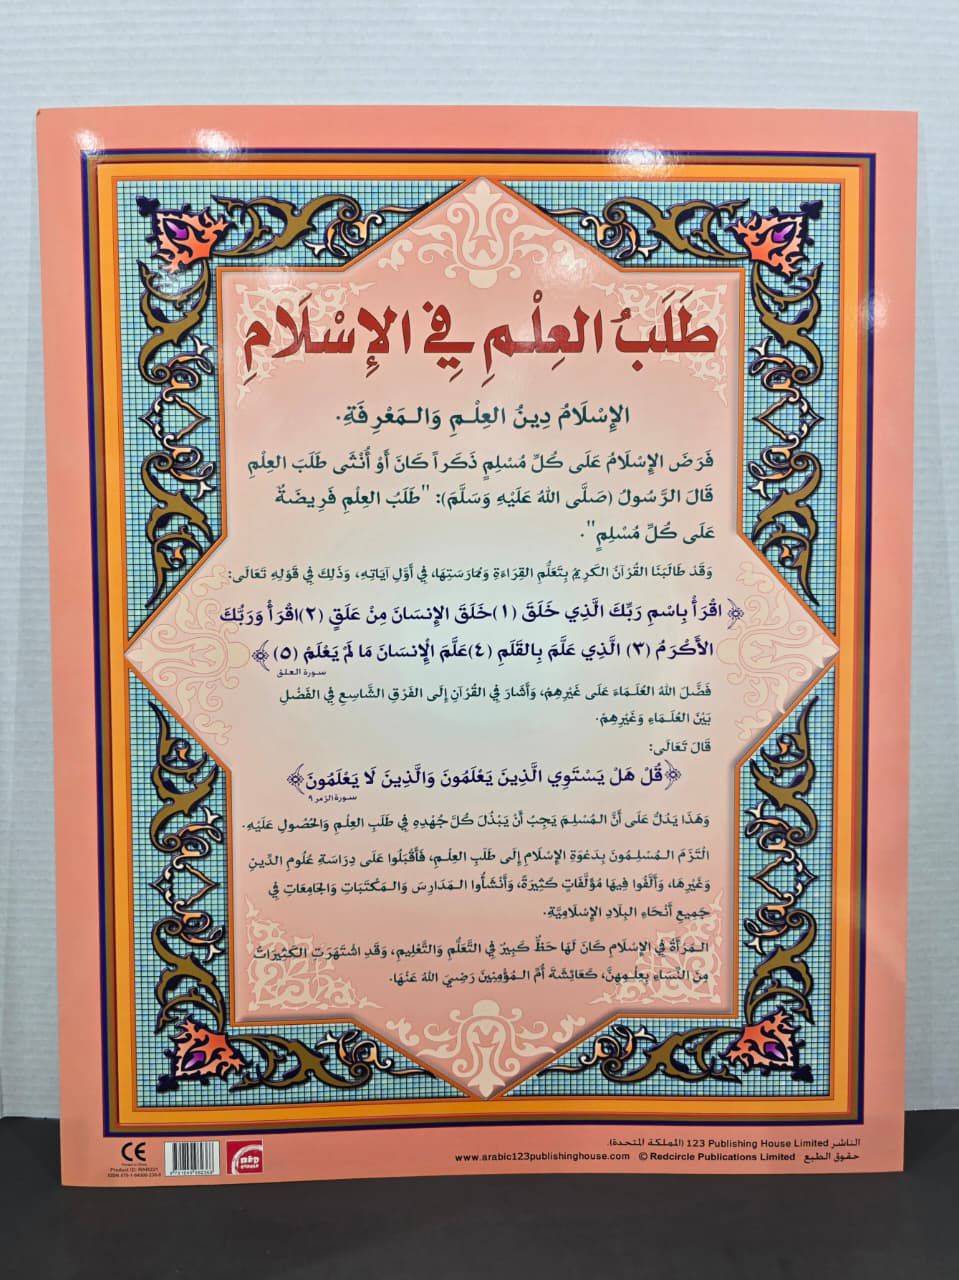 طَلَبُ العِلْمِ فِي الإِسْلَامِ
الإِسْلَامُ دِينُ العِلْمِ وَالمَعْرِفَةِ.
فَرَضَ الإِسْلَامُ عَلَى كُلِّ مُسْلِمٍ ذَكَراً كَانَ أَوْ أُنْثَى طَلَبَ العِلْمِ
قَالَ الرَّسُولُ (صَلَّى اللهُ عَلَيْهِ وَسَلَّمَ): "طَلَبُ العِلْمِ فَرِيضَةٌ
عَلَى كُلِّ مُسْلِمٍ".
وَقَدْ طَالَبَنَا القُرْآنُ الكَرِيمُ بِتَعَلُّمِ القِرَاءَةِ وَمُمَارَسَتِهَا، فِي أَوَّلِ آيَاتِهِ، وَذَلِكَ فِي قَوْلِهِ تَعَالَى:
﴿ اقْرَأْ بِاسْمِ رَبِّكَ الَّذِي خَلَقَ (١) خَلَقَ الإِنسَانَ مِنْ عَلَقٍ (٢) اقْرَأْ وَرَبُّكَ
الأَكْرَمُ (٣) الَّذِي عَلَّمَ بِالقَلَمِ (٤) عَلَّمَ الإِنسَانَ مَا لَمْ يَعْلَمْ (٥) ﴾
سورة العلق
فَضَّلَ اللهُ العُلَمَاءَ عَلَى غَيْرِهِمْ، وَأَشَارَ فِي القُرْآنِ إِلَى الفَرْقِ الشَّاسِعِ فِي الفَضْلِ
بَيْنَ العُلَمَاءِ وَغَيْرِهِمْ.
قَالَ تَعَالَى:
﴿قُلْ هَلْ يَسْتَوِي الَّذِينَ يَعْلَمُونَ وَالَّذِينَ لَا يَعْلَمُونَ﴾
سورة الزمر ٩
وَهَذَا يَدُلُّ عَلَى أَنَّ المُسْلِمَ يَجِبُ أَنْ يَبْذُلَ كُلَّ جُهْدِهِ فِي طَلَبِ العِلْمِ وَالحُصُولِ عَلَيْهِ.
الْتَزَمَ المُسْلِمُونَ بِدَعْوَةِ الإِسْلَامِ إِلَى طَلَبِ العِلْمِ، فَأَقْبَلُوا عَلَى دِرَاسَةِ عُلُومِ الدِّينِ
وَغَيْرِهَا، وَأَلَّفُوا فِيهَا مُؤَلَّفَاتٍ كَثِيرَةً، وَأَنْشَأُوا المَدَارِسَ وَالمَكْتَبَاتِ وَالجَامِعَاتِ فِي
جَمِيعِ أَنْحَاءِ البِلَادِ الإِسْلَامِيَّةِ.
المَرْأَةُ فِي الإِسْلَامِ كَانَ لَهَا حَظٌّ كَبِيرٌ فِي التَّعَلُّمِ وَالتَّعْلِيمِ، وَقَدِ اشْتَهَرَتِ الكَثِيرَاتُ
مِنَ النِّسَاءِ بِعِلْمِهِنَّ، كَعَائِشَةَ أُمِّ المُؤْمِنِينَ رَضِيَ اللهُ عَنْهَا.
الناشر 123 Publishing House Limited (المملكة المتحدة).
حقوق الطبع © Redcircle Publications Limited www.arabic123publishinghouse.com
CE